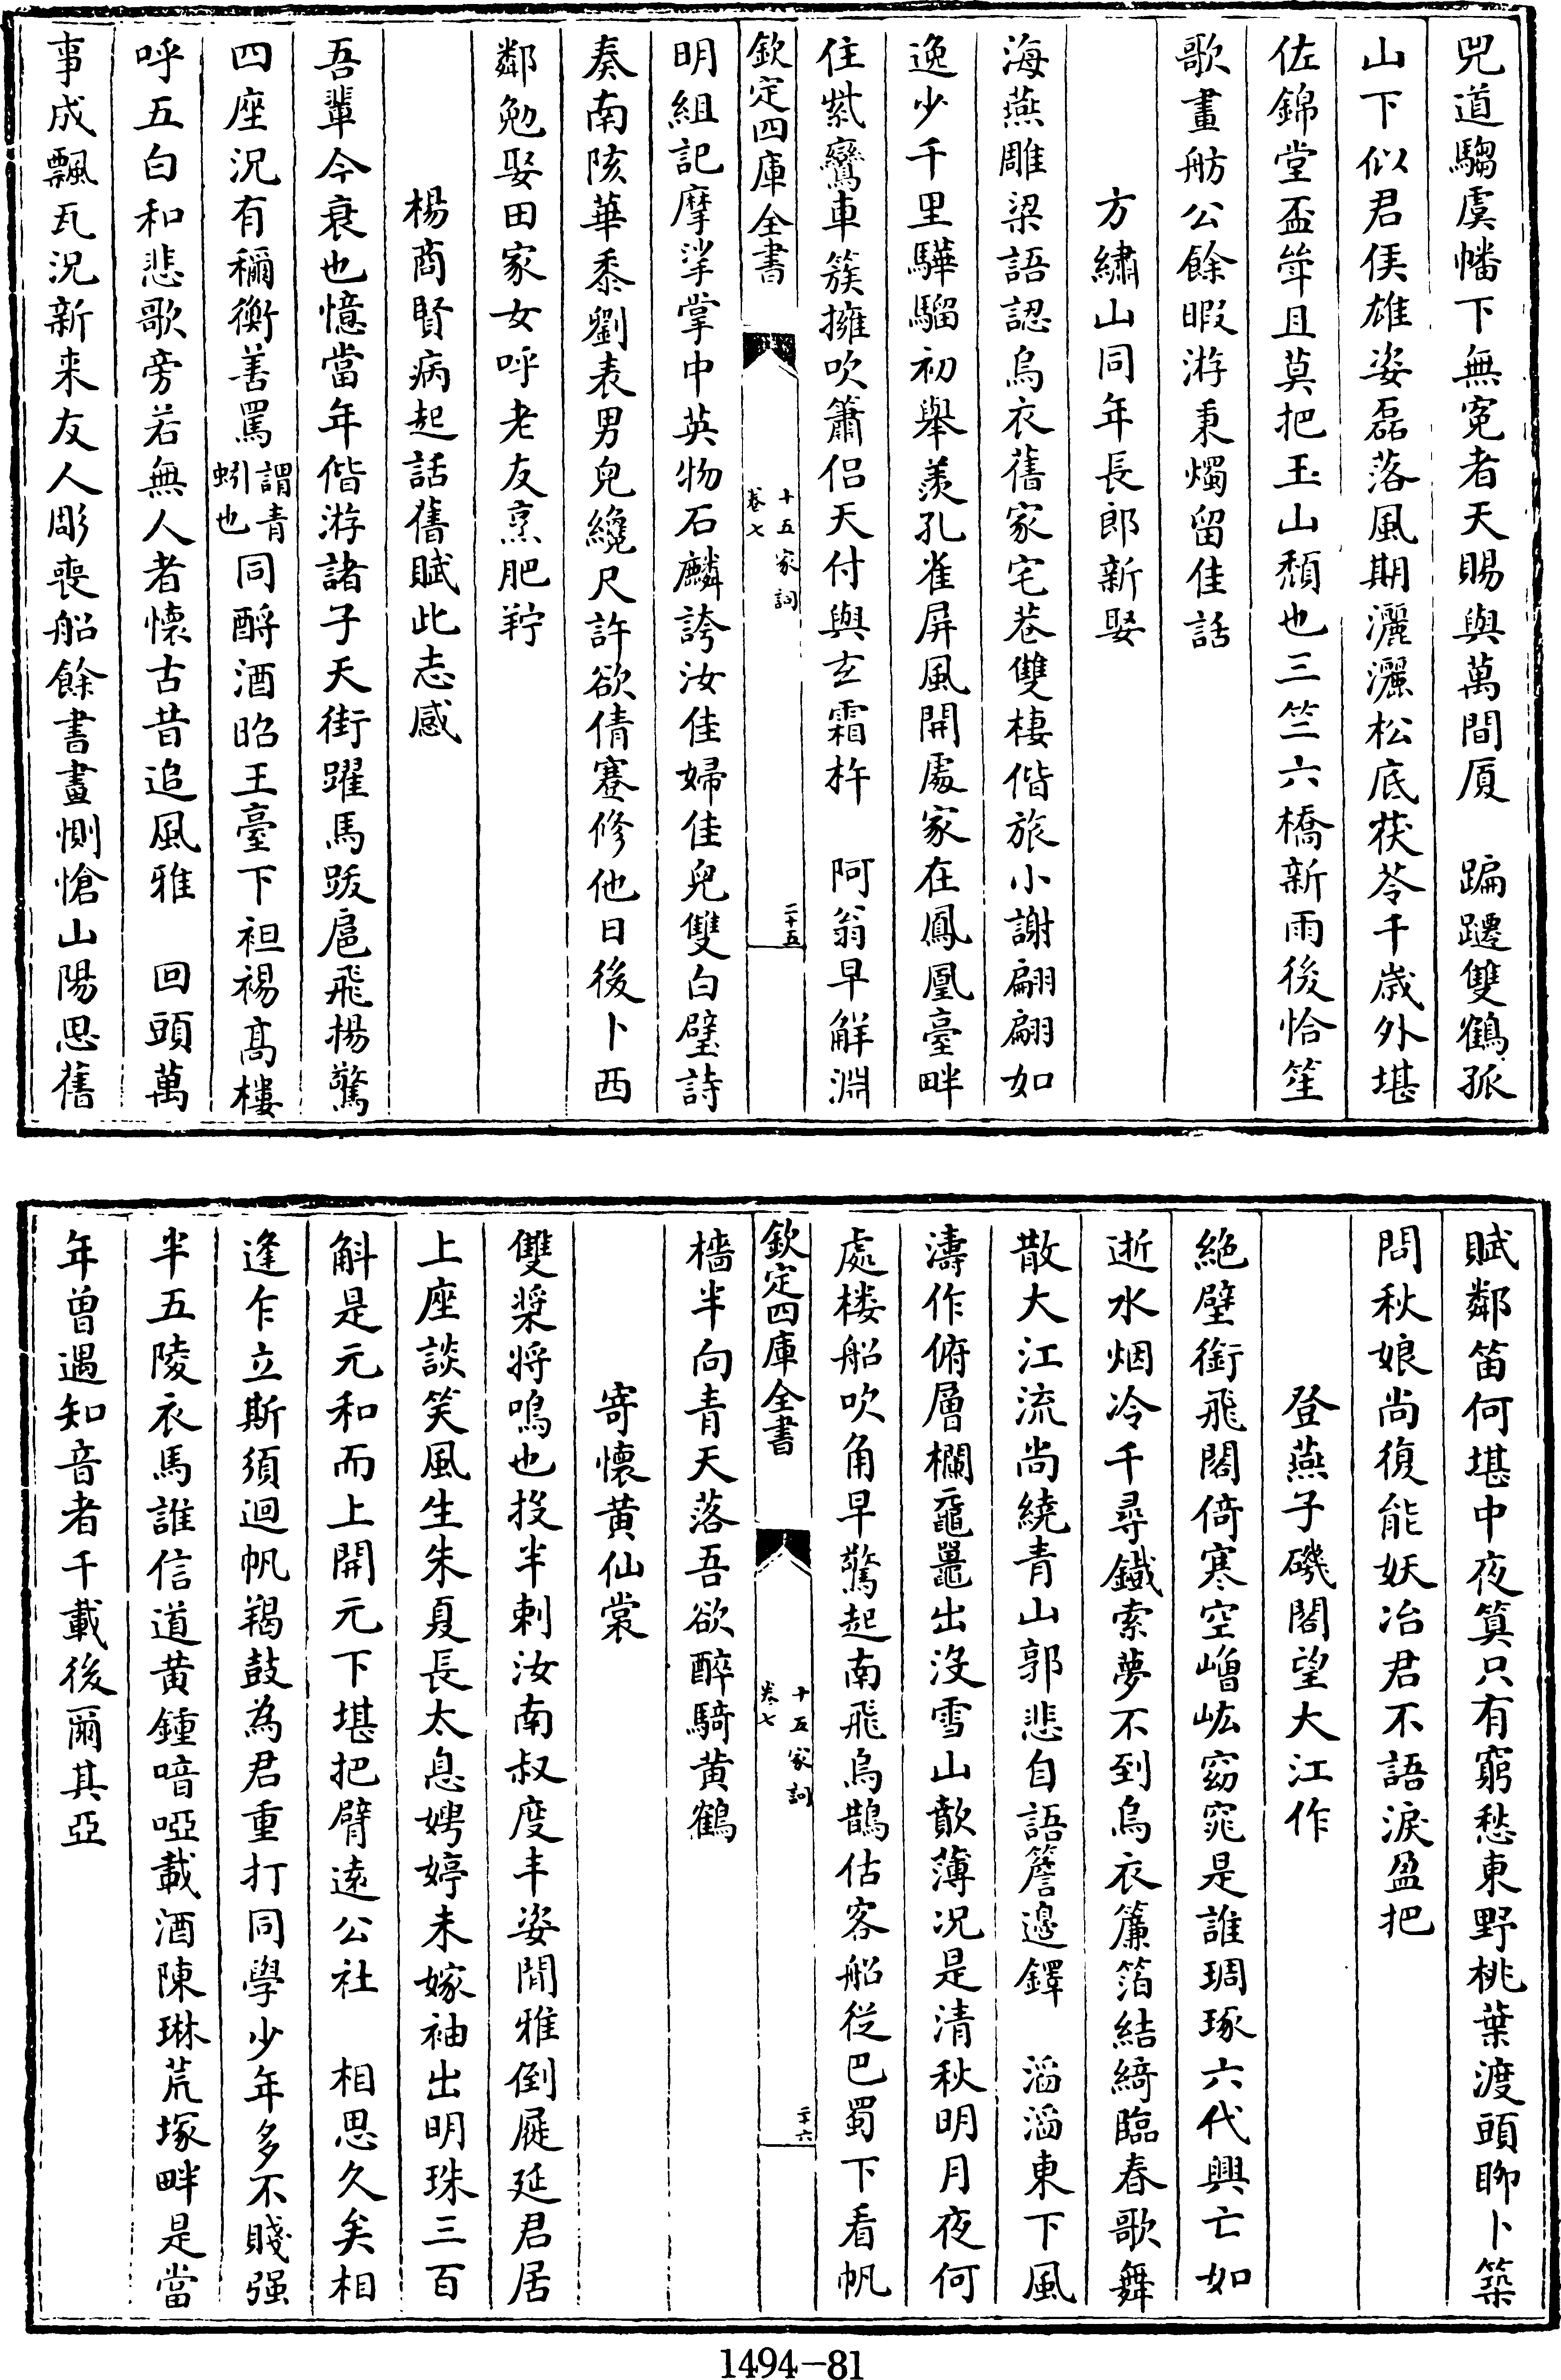 兕道騶虞幡下無寃者天賜與萬間厦　蹁躚雙鶴孤
山下似君侯雄姿磊落風期灑灑松底茯苓千歳外堪
佐錦堂盃斝且莫把玉山頽也三竺六橋新雨後恰笙
歌畫舫公餘暇游秉燭留佳話
方繡山同年長郎新娶
海燕雕梁語認烏衣舊家宅巷雙棲偕旅小謝翩翩如
逸少千里驊騮初舉羨孔雀屏風開處家在鳳凰臺畔
住紫鸞車簇擁吹簫侣天付與玄霜杵　阿翁早解淵
欽定四庫全書
十五家詞
卷七
二十五
明組記摩挲掌中英物石麟誇汝佳婦佳兒雙白璧詩
奏南陔華黍劉表男兒纔尺許欲倩蹇修他日後卜西
鄰勉娶田家女呼老友烹肥羜
楊商賢病起話舊賦此志感
吾輩今衰也憶當年偕游諸子天街躍馬跋扈飛揚驚
四座況有禰衡善罵謂青蚓也同酹酒昭王臺下袒裼髙樓
呼五白和悲歌旁若無人者懷古昔追風雅　回頭萬
事成飄瓦況新来友人彫喪船餘書畫惻愴山陽思舊
賦鄰笛何堪中夜算只有窮愁東野桃葉渡頭聊卜築
問秋娘尚復能妖冶君不語淚盈把
登燕子磯閣望大江作
絶壁銜飛閣倚寒空嶒峵窈窕是誰琱琢六代興亡如
逝水烟冷千尋鐡索夢不到烏衣簾箔結綺臨春歌舞
散大江流尚繞青山郭悲自語簷邊鐸　滔滔東下風
濤作俯層欄黿鼉出没雪山歕薄况是清秋明月夜何
處楼船吹角早驚起南飛烏鵲估客船從巴蜀下看帆
欽定四庫全書
十五家詞
卷七
二十六
檣半向青天落吾欲醉騎黄鶴
寄懷黄仙裳
雙槳将鳴也投半刺汝南叔度丰姿閒雅倒屣延君居
上座談笑風生朱夏長太息娉婷未嫁袖出明珠三百
斛是元和而上開元下堪把臂逺公社　相思久矣相
逢乍立斯須迴帆羯鼓為君重打同學少年多不賤强
半五陵衣馬誰信道黄鍾喑啞載酒陳琳荒塚畔是當
年曾遇知音者千載後爾其亞
1494-81